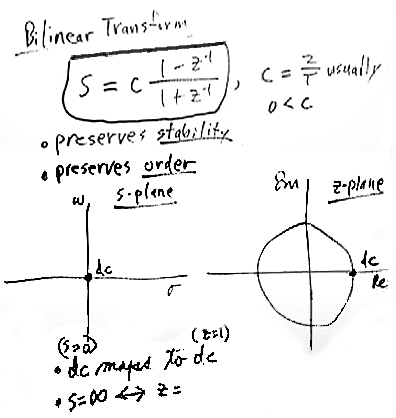 Bilinear Transform
S = c (1 - z⁻¹)/(1 + z⁻¹), c = 2/T usually
0 < c
• preserves stability
• preserves order
s-plane
z-plane
ω
Im
dc
σ
dc
Re
(s=0)
(z=1)
• dc maps to dc
• s=∞ ↔ z =